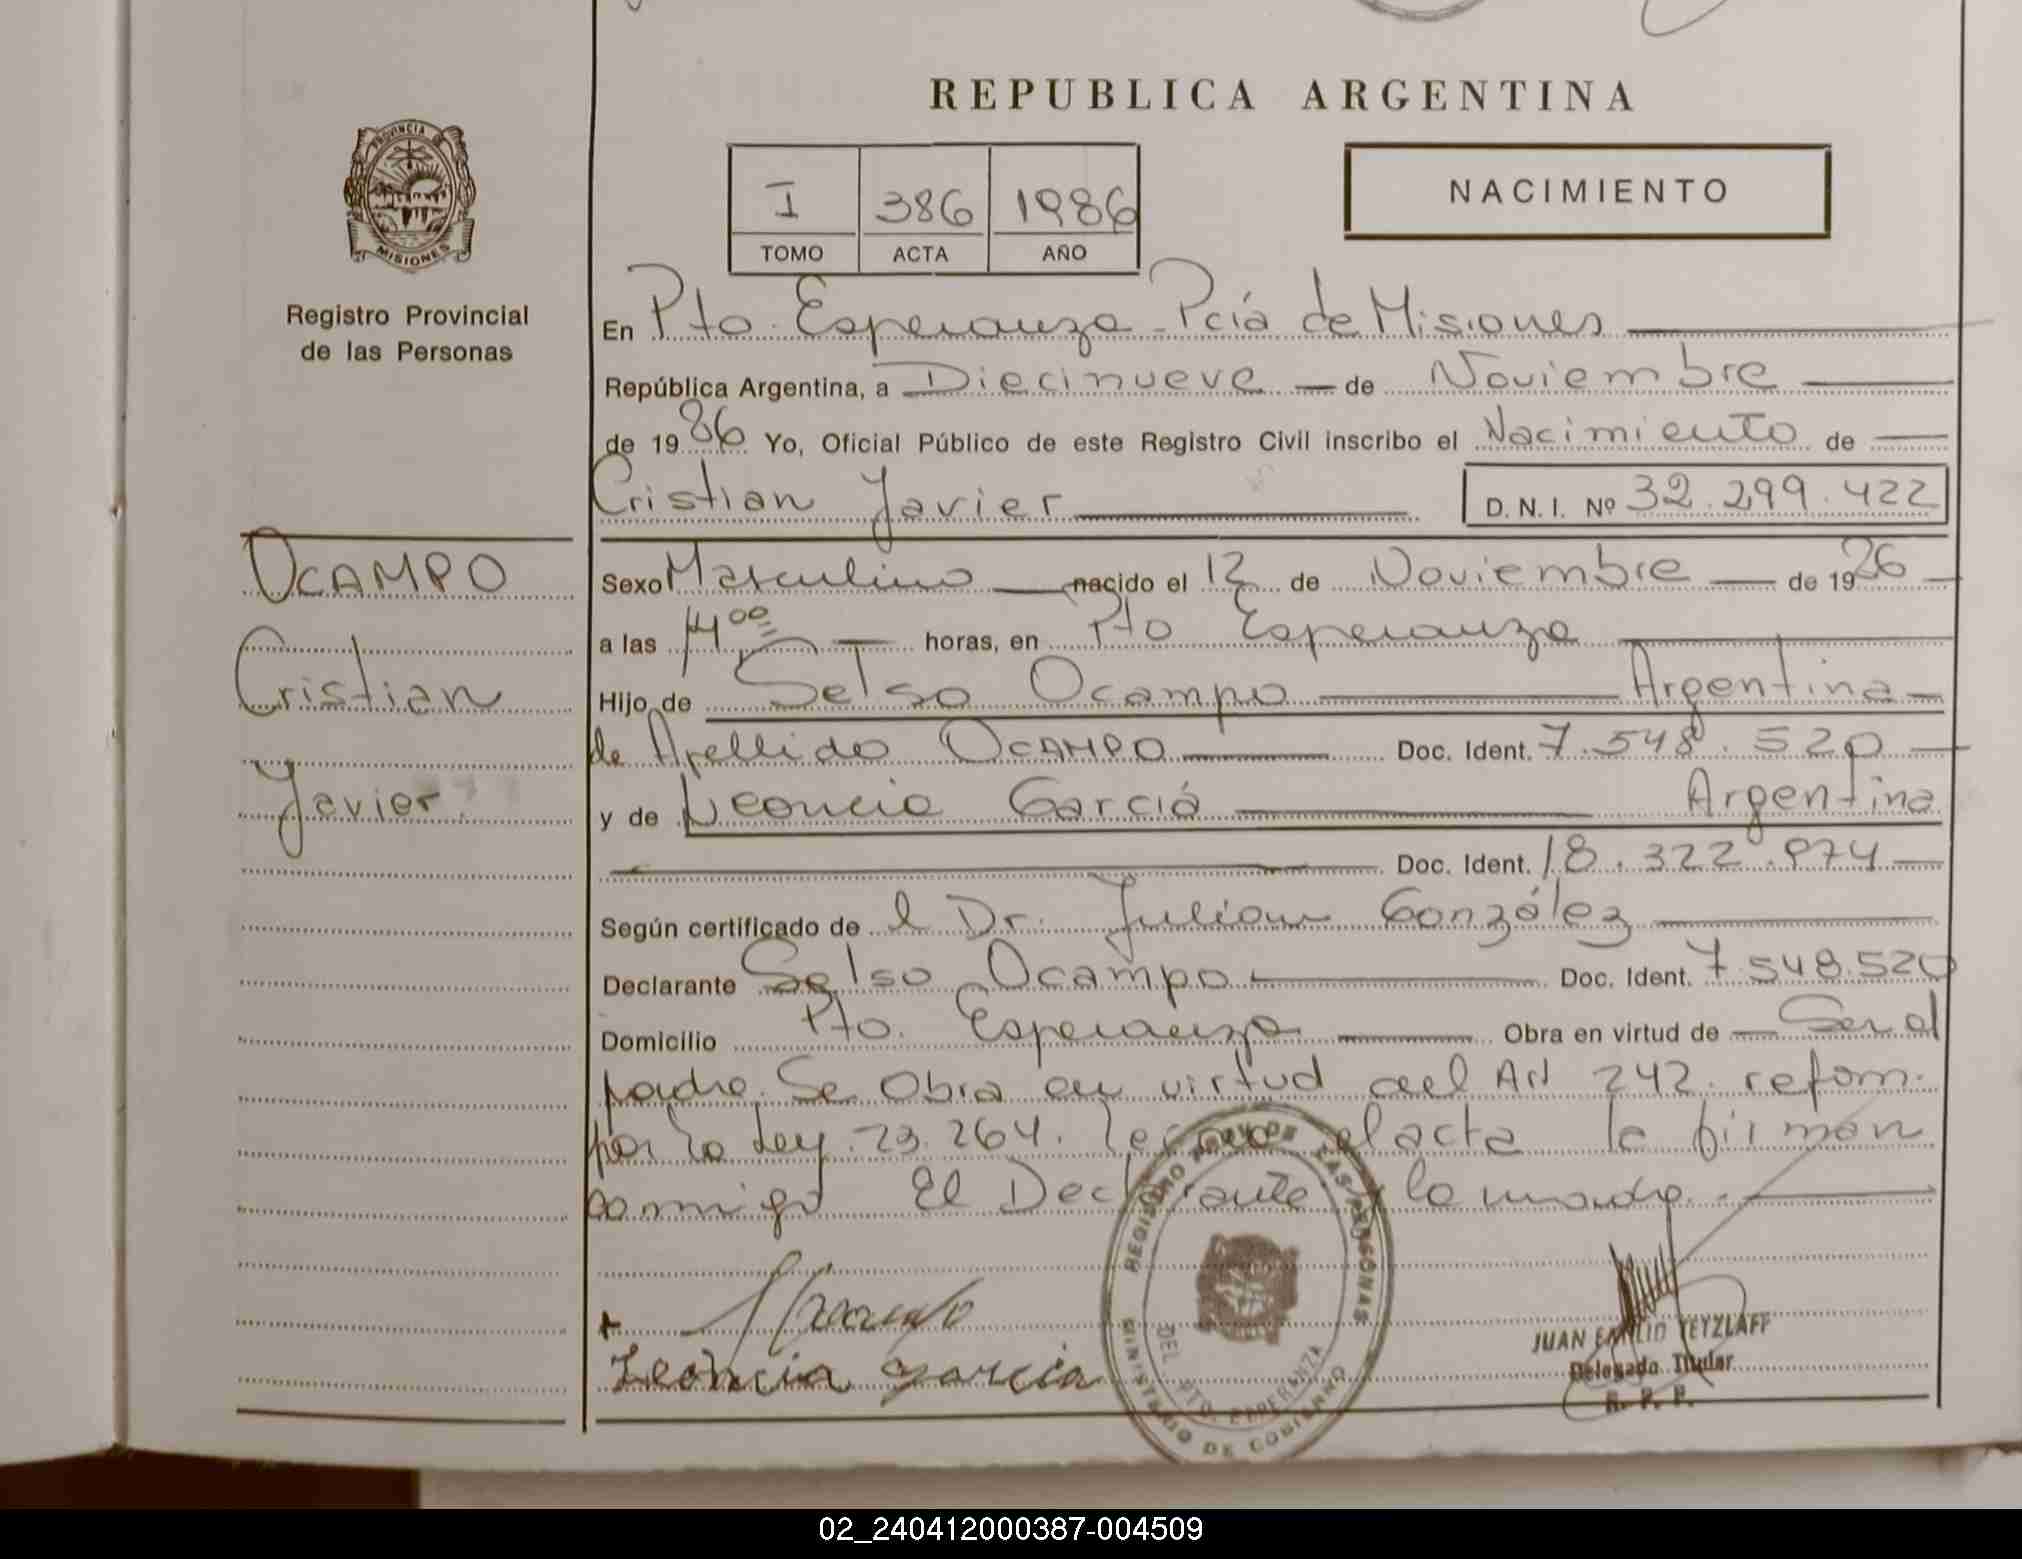 REPUBLICA ARGENTINA
PROVINCIA DE
MISIONES
Registro Provincial
de las Personas
I 386 1986
TOMO ACTA AÑO
NACIMIENTO
En Pto. Esperanza - Pcia de Misiones
República Argentina, a Diecinueve de Noviembre
de 1986 Yo, Oficial Público de este Registro Civil inscribo el Nacimiento de
Cristian Javier D. N. I. Nº 32.299.422
OCAMPO
Cristian
Javier.
Sexo Masculino nacido el 12 de Noviembre de 1986
a las 14 00 horas, en Pto Esperanza
Hijo de Selso Ocampo Argentina
de Apellido OCAMPO Doc. Ident. 7.548.520
y de Leoncia García Argentina
Doc. Ident. 18.322.974
Según certificado de l Dr. Julian González
Declarante Selso Ocampo Doc. Ident. 7.548.520
Domicilio Pto. Esperanza Obra en virtud de Ser el
padre. Se Obra en virtud del Art 242. reform.
por la Ley. 23.264. el acta la firman
conmigo El Declarante y la madre.
Leoncia Garcia
REGISTRO PROV. DE LAS PERSONAS
MINISTERIO DE GOBIERNO
DEL. PTO. ESPERANZA
JUAN EMILIO TEYZLAFF
Delegado Titular
R. P. P.
02_240412000387-004509